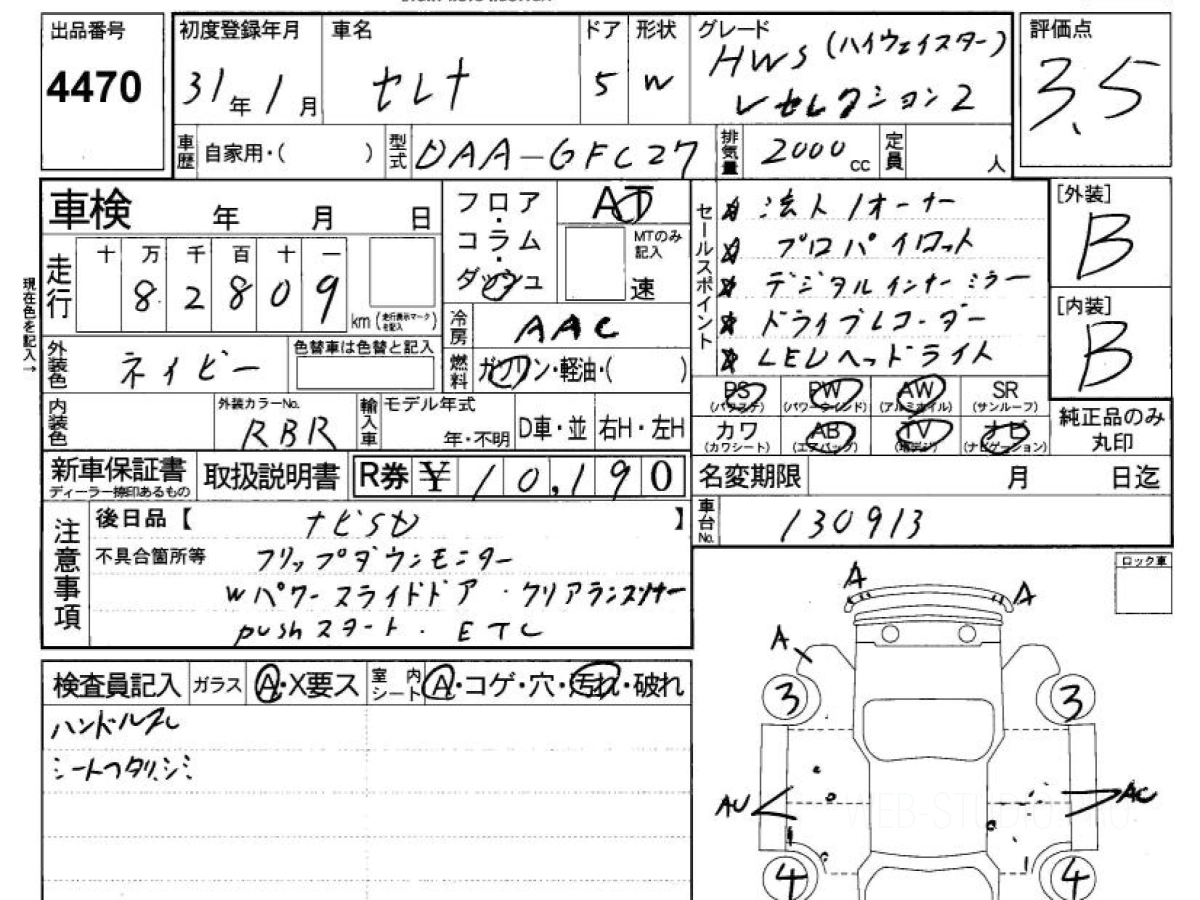 出品番号
4470
初度登録年月
31年1月
車名
セレナ
ドア
5
形状
W
グレード
HWS (ハイウェイスター)
Vセレクション2
評価点
3.5
車歴
自家用・( )
型式
DAA-GFC27
排気量
2000cc
定員
人
車検 年 月 日
現在色を記入→
走行
十 万 千 百 十 一
8 2 8 0 9
km (走行表示マークを記入)
フロア・コラム・ダッシュ
AT
MTのみ記入
速
冷房
AAC
燃料
ガソリン・軽油・( )
セールスポイント
法人1オーナー
プロパイロット
デジタルインナーミラー
ドライブレコーダー
LEDヘッドライト
[外装]
B
[内装]
B
外装色
ネイビー
色替車は色替と記入
内装色
外装カラーNo.
RBR
輸入車
モデル年式
年・不明
D車・並
右H・左H
PS
(パワステ)
PW
(パワーウィンド)
AW
(アルミホイル)
SR
(サンルーフ)
カワ
(カワシート)
AB
(エアバック)
TV
(地デジ)
ナビ
(ナビゲーション)
純正品のみ
丸印
新車保証書
ディーラー捺印あるもの
取扱説明書
R券 ¥ 10,190
名変期限 月 日迄
車台No.
130913
注意事項
後日品【 ナビSD 】
不具合箇所等 フリップダウンモニター
Wパワースライドドア・クリアランスソナー
pushスタート. ETC
ロック車
検査員記入
ガラス
A・X要ス
室内シート
A・コゲ・穴・汚れ・破れ
ハンドルスレ
A
A
A
3
3
AU
AC
4
4
WEB-STUDIO.RU